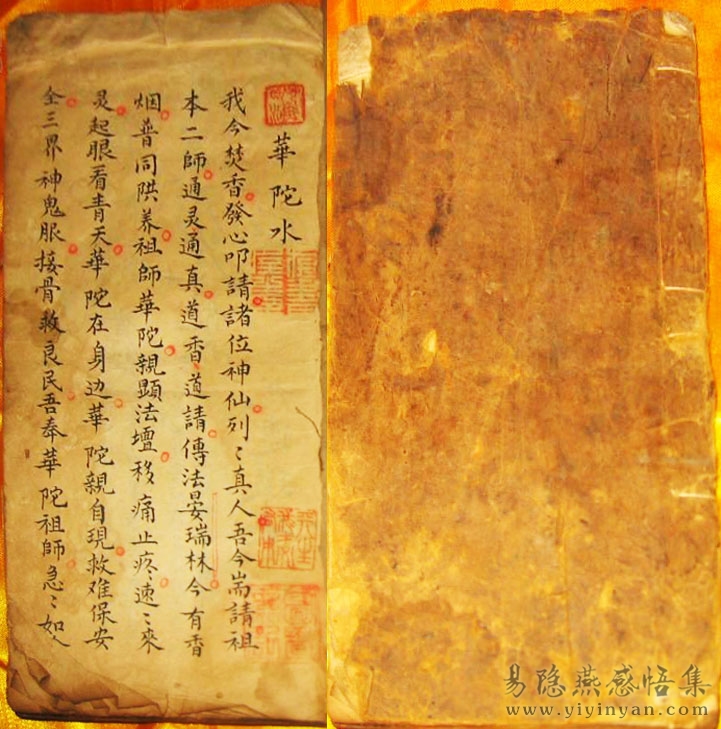 華陀水
我今焚香發心叩請諸位神仙列〻真人吾今耑請祖
本二師通灵通真道香〻道請傳法晏瑞林今有香
烟普同供养祖師華陀親顕法壇移痛止疼〻速〻來
灵起眼看青天華陀在身边華陀親自現救难保安
全三界神鬼服接骨救良民吾奉華陀祖師急〻如
易隐燕感悟集
www.yiyinyan.com